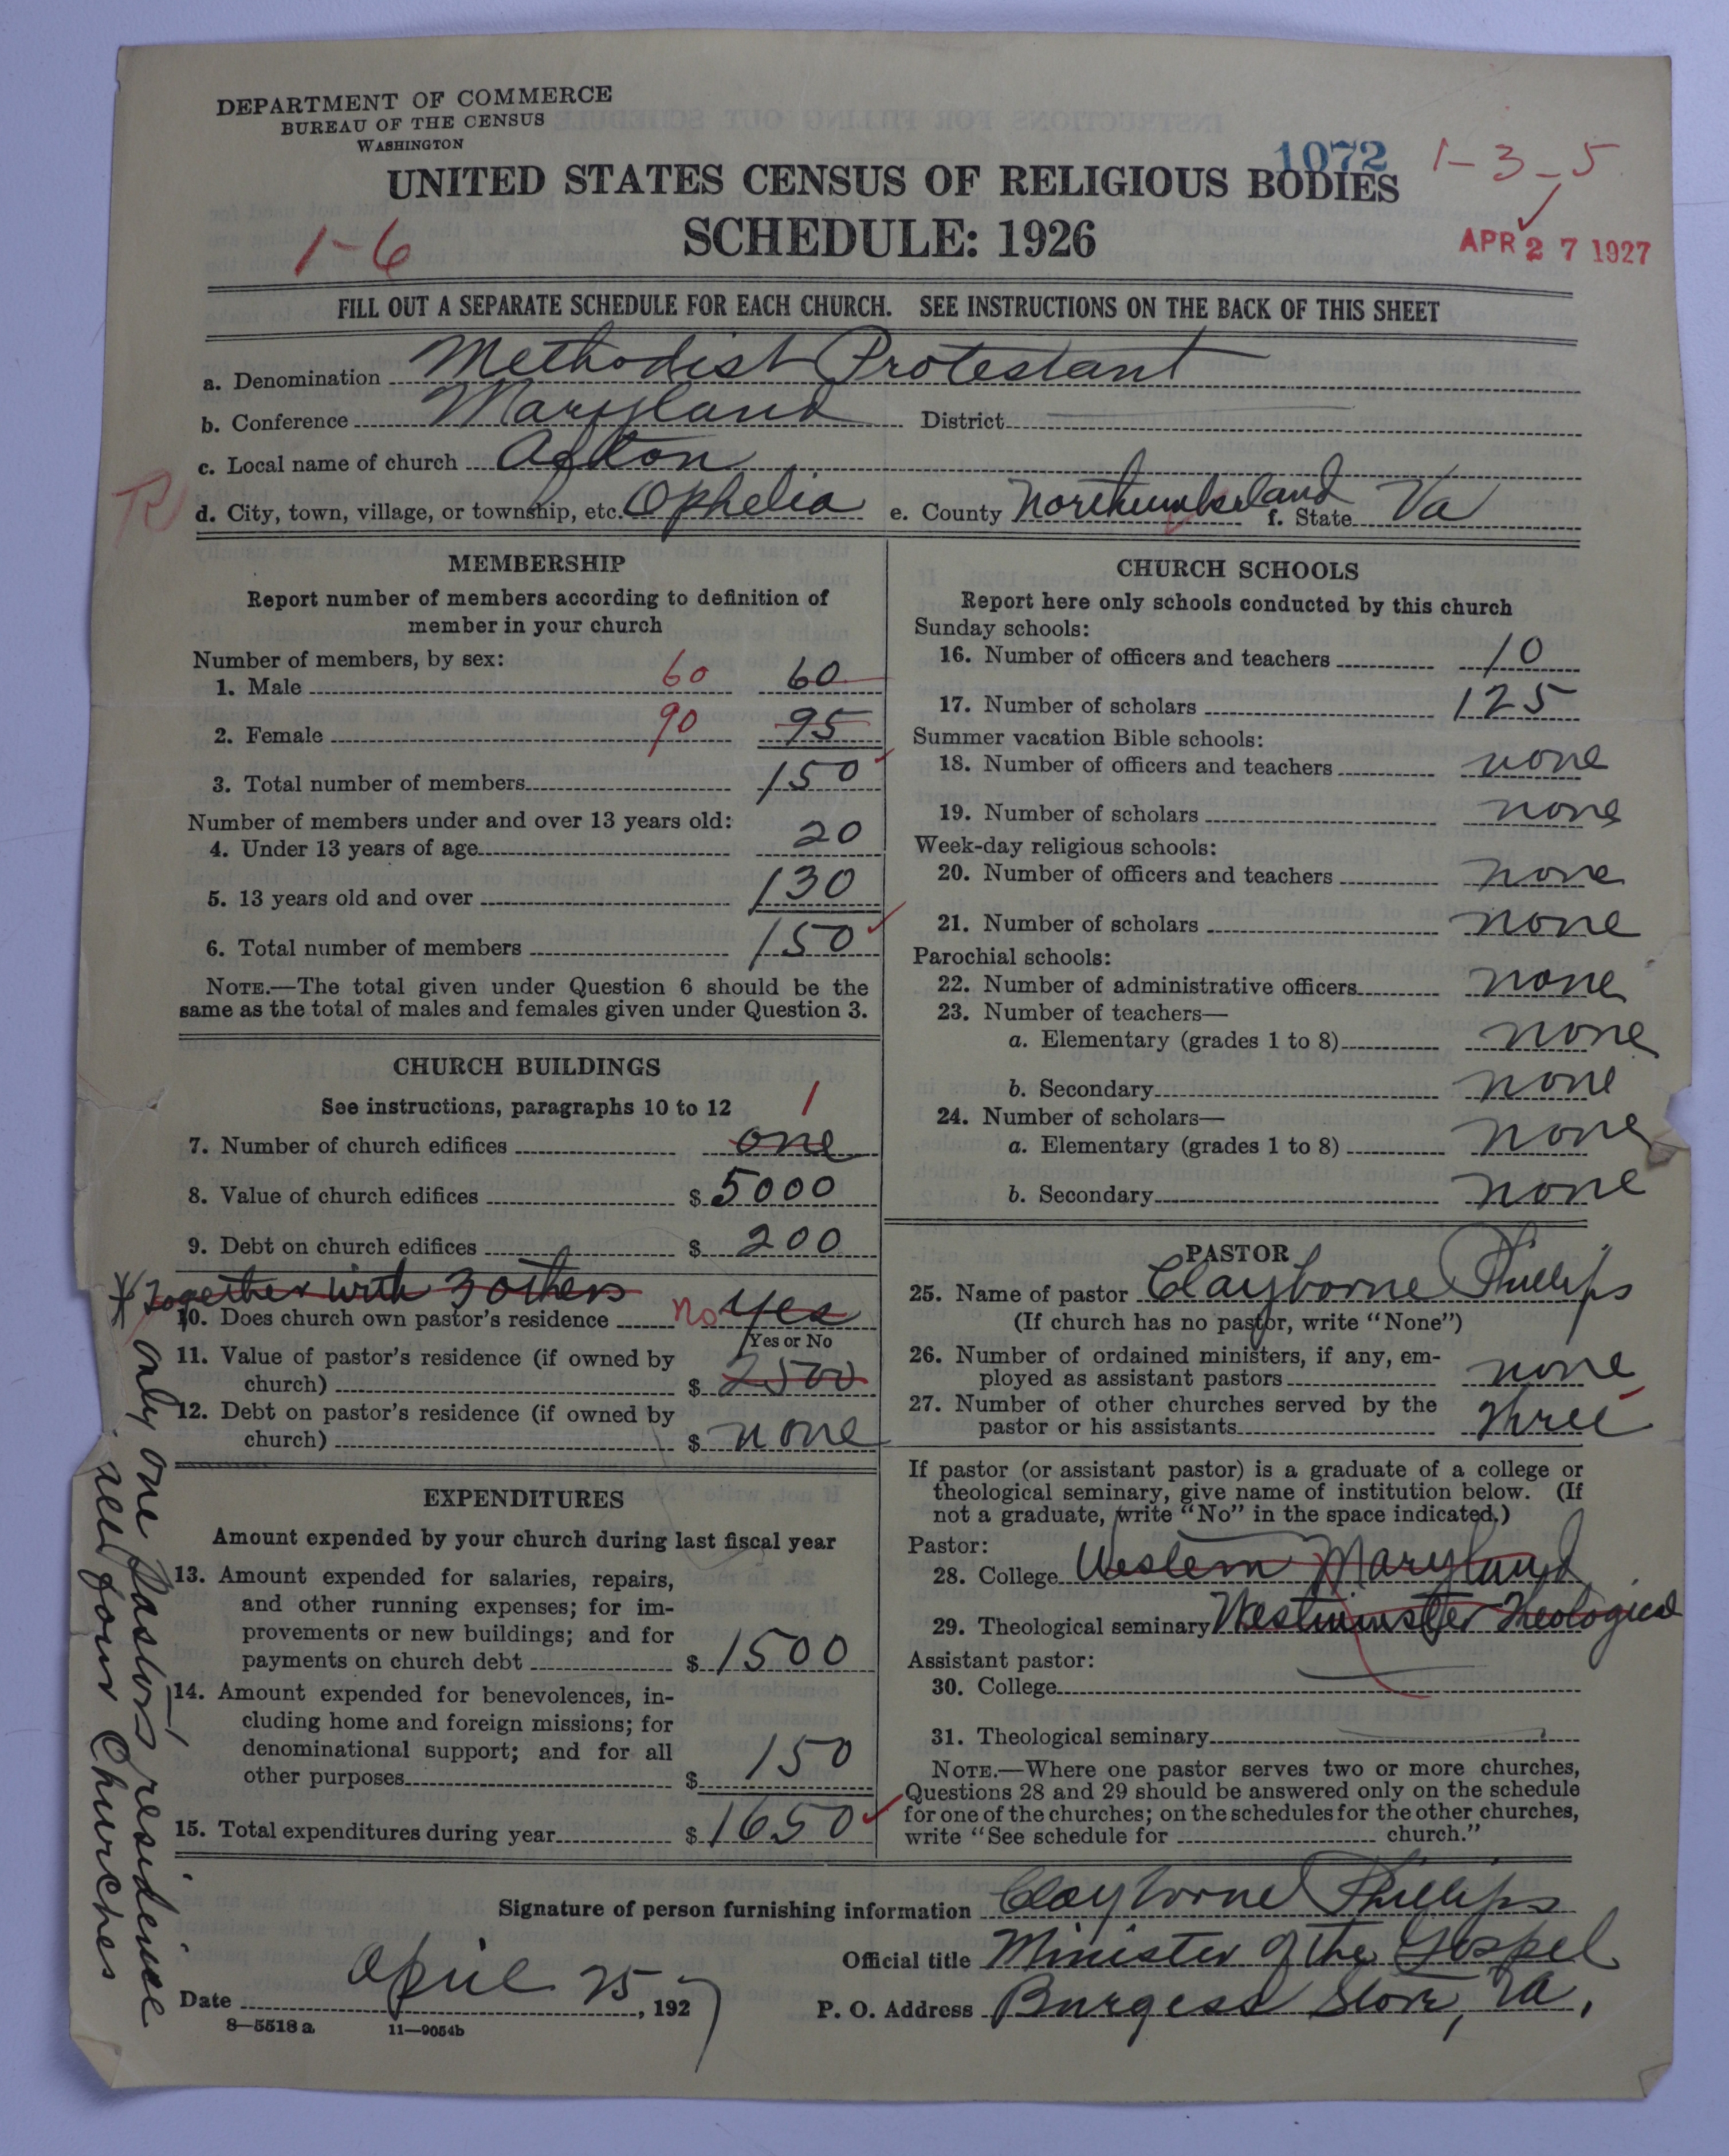 DEPARTMENT OF COMMERCE
BUREAU OF THE CENSUS
WASHINGTON
1072
1-3-5
UNITED STATES CENSUS OF RELIGIOUS BODIES
1-6
SCHEDULE: 1926
APR 27 1927
FILL OUT A SEPARATE SCHEDULE FOR EACH CHURCH. SEE INSTRUCTIONS ON THE BACK OF THIS SHEET
a. Denomination Methodist Protestant
b. Conference Maryland District
c. Local name of church
R
d. City, town, village, or township, etc. Ophelia e. County Northumberland f. State Va
MEMBERSHIP
Report number of members according to definition of
member in your church
Number of members, by sex:
1. Male 60 60
2. Female 90 95
3. Total number of members 150
Number of members under and over 13 years old:
4. Under 13 years of age 20
5. 13 years old and over 130
6. Total number of members 150
NOTE.—The total given under Question 6 should be the
same as the total of males and females given under Question 3.
CHURCH BUILDINGS
See instructions, paragraphs 10 to 12 1
7. Number of church edifices one
8. Value of church edifices $ 5000
9. Debt on church edifices $ 200
* Together with 3 others
10. Does church own pastor's residence no yes
Yes or No
11. Value of pastor's residence (if owned by
church) $ 2500
12. Debt on pastor's residence (if owned by
church) $ none
* only one Pastor's residence
all four Churches
EXPENDITURES
Amount expended by your church during last fiscal year
13. Amount expended for salaries, repairs,
and other running expenses; for im-
provements or new buildings; and for
payments on church debt $ 1500
14. Amount expended for benevolences, in-
cluding home and foreign missions; for
denominational support; and for all
other purposes $ 150
15. Total expenditures during year $ 1650
CHURCH SCHOOLS
Report here only schools conducted by this church
Sunday schools:
16. Number of officers and teachers 10
17. Number of scholars 125
Summer vacation Bible schools:
18. Number of officers and teachers none
19. Number of scholars none
Week-day religious schools:
20. Number of officers and teachers none
21. Number of scholars none
Parochial schools:
22. Number of administrative officers none
23. Number of teachers—
a. Elementary (grades 1 to 8) none
b. Secondary none
24. Number of scholars—
a. Elementary (grades 1 to 8) none
b. Secondary none
PASTOR
25. Name of pastor Clayborne Phillips
(If church has no pastor, write "None")
26. Number of ordained ministers, if any, em-
ployed as assistant pastors none
27. Number of other churches served by the
pastor or his assistants three
If pastor (or assistant pastor) is a graduate of a college or
theological seminary, give name of institution below. (If
not a graduate, write "No" in the space indicated.)
Pastor:
28. College Western Maryland
29. Theological seminary Westminster Theological
Assistant pastor:
30. College
31. Theological seminary
NOTE.—Where one pastor serves two or more churches,
Questions 28 and 29 should be answered only on the schedule
for one of the churches; on the schedules for the other churches,
write "See schedule for church."
Signature of person furnishing information Clayborne Phillips
Official title Minister of the Gospel
Date April 25, 1927
P. O. Address Burgess Store, Va.
8—5518a 11—9054b